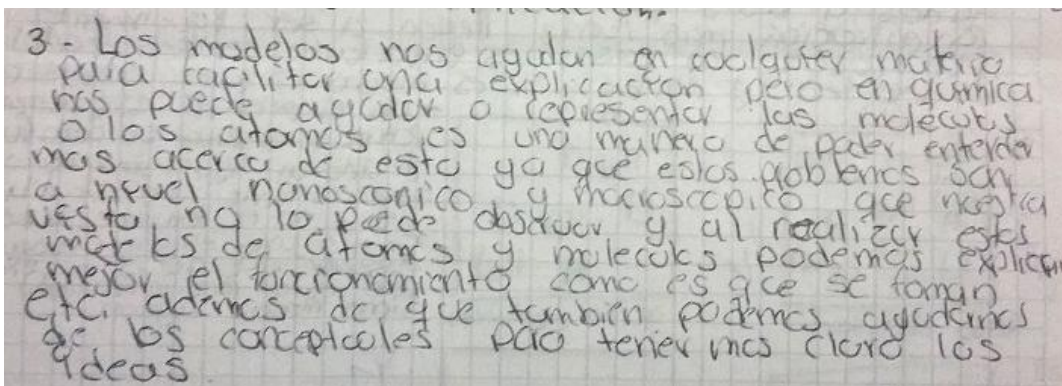 3- Los modelos nos ayudan en cualquier materia
para facilitar una explicacion pero en quimica
nos puede ayudar a representar las moleculas
o los atomos es una manera de poder entender
mas acerca de esto ya que estos problemas son
a nivel nanoscopico y macroscopico que nuestra
vista no lo puede observar y al realizar estos
modelos de atomos y moleculas podemos explicar
mejor el funcionamiento como es que se forman
etc. ademas de que tambien podemos ayudarnos
de los conceptuales para tener mas claro las
ideas.